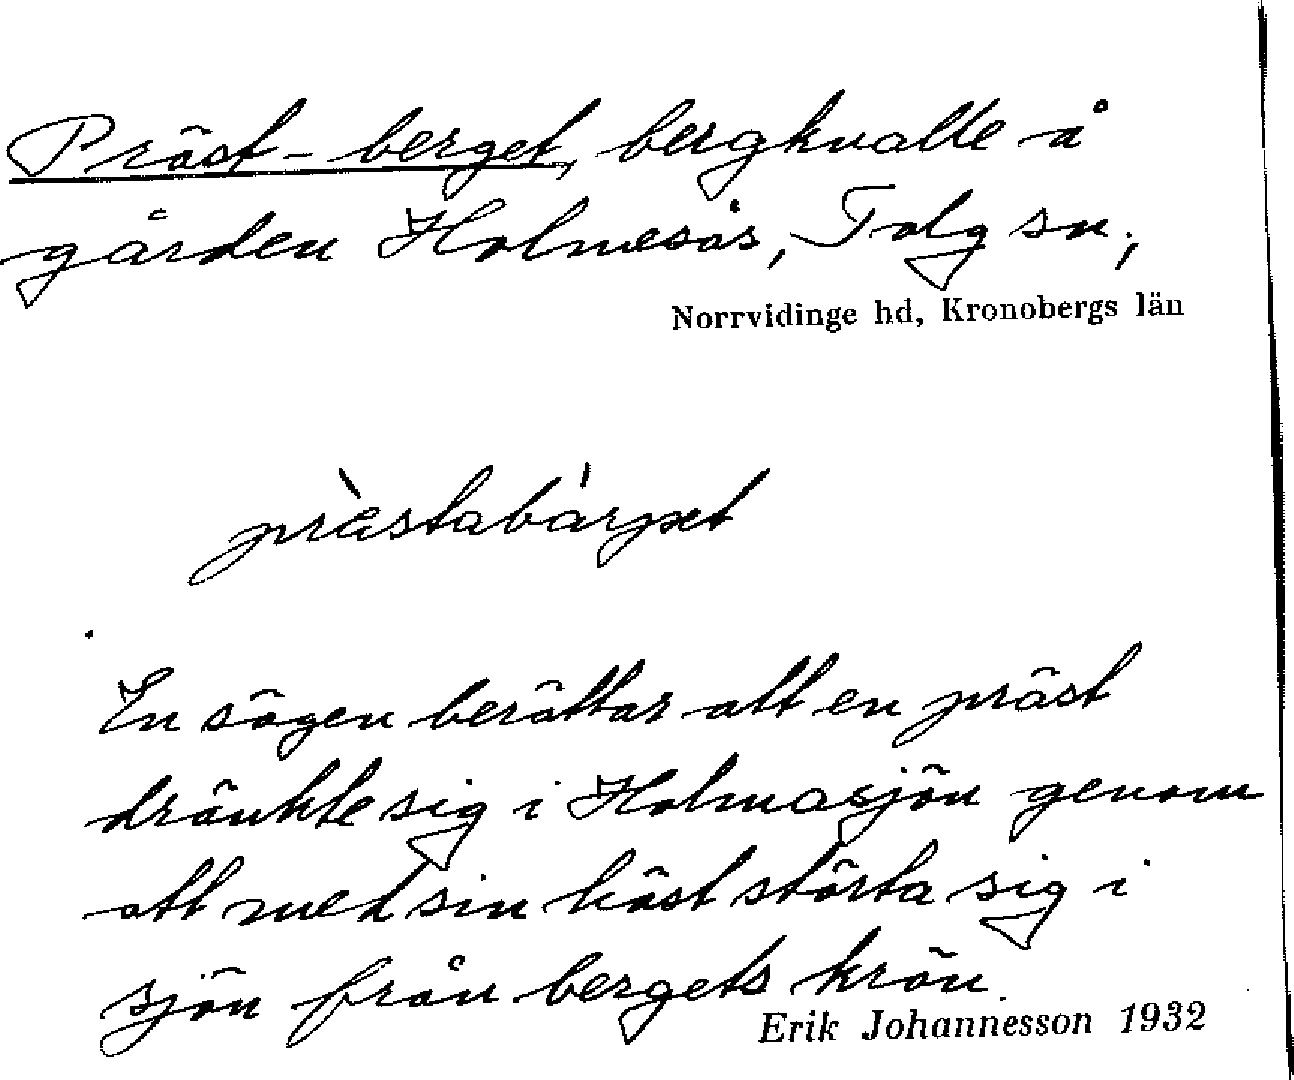 Präst-berget, bergkulle å
gården Holmesås, Tolg sn,
Norrvidinge hd, Kronobergs län
prästabärjet
En sägen berättar att en präst
dränkte sig i Holmasjön genom
att med sin häst störta sig i
sjön från bergets krön.
Erik Johannesson 1932